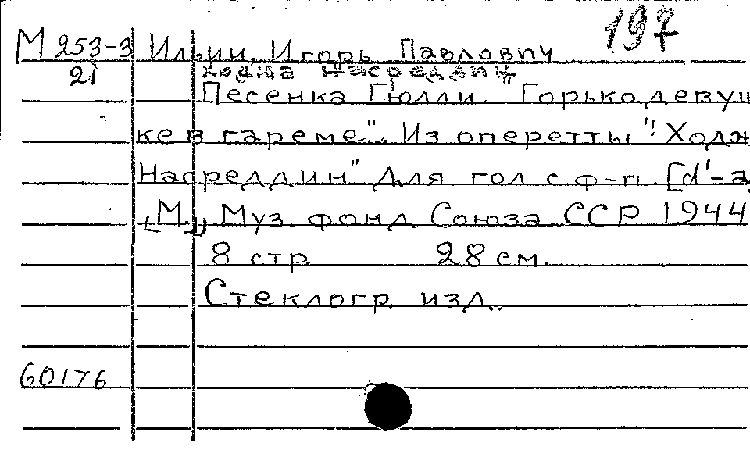 197
М 253-3 Ильин, Игорь Павлович
21 Ходжа Насреддин
Песенка Гюлли. Горько девуш
ке в гареме". Из оперетты "Ходж
Насреддин" Для гол с ф-п. [d'-a
[М.], Муз фонд Союза ССР 1944
8 стр 28 см.
Стеклогр изд.
60176